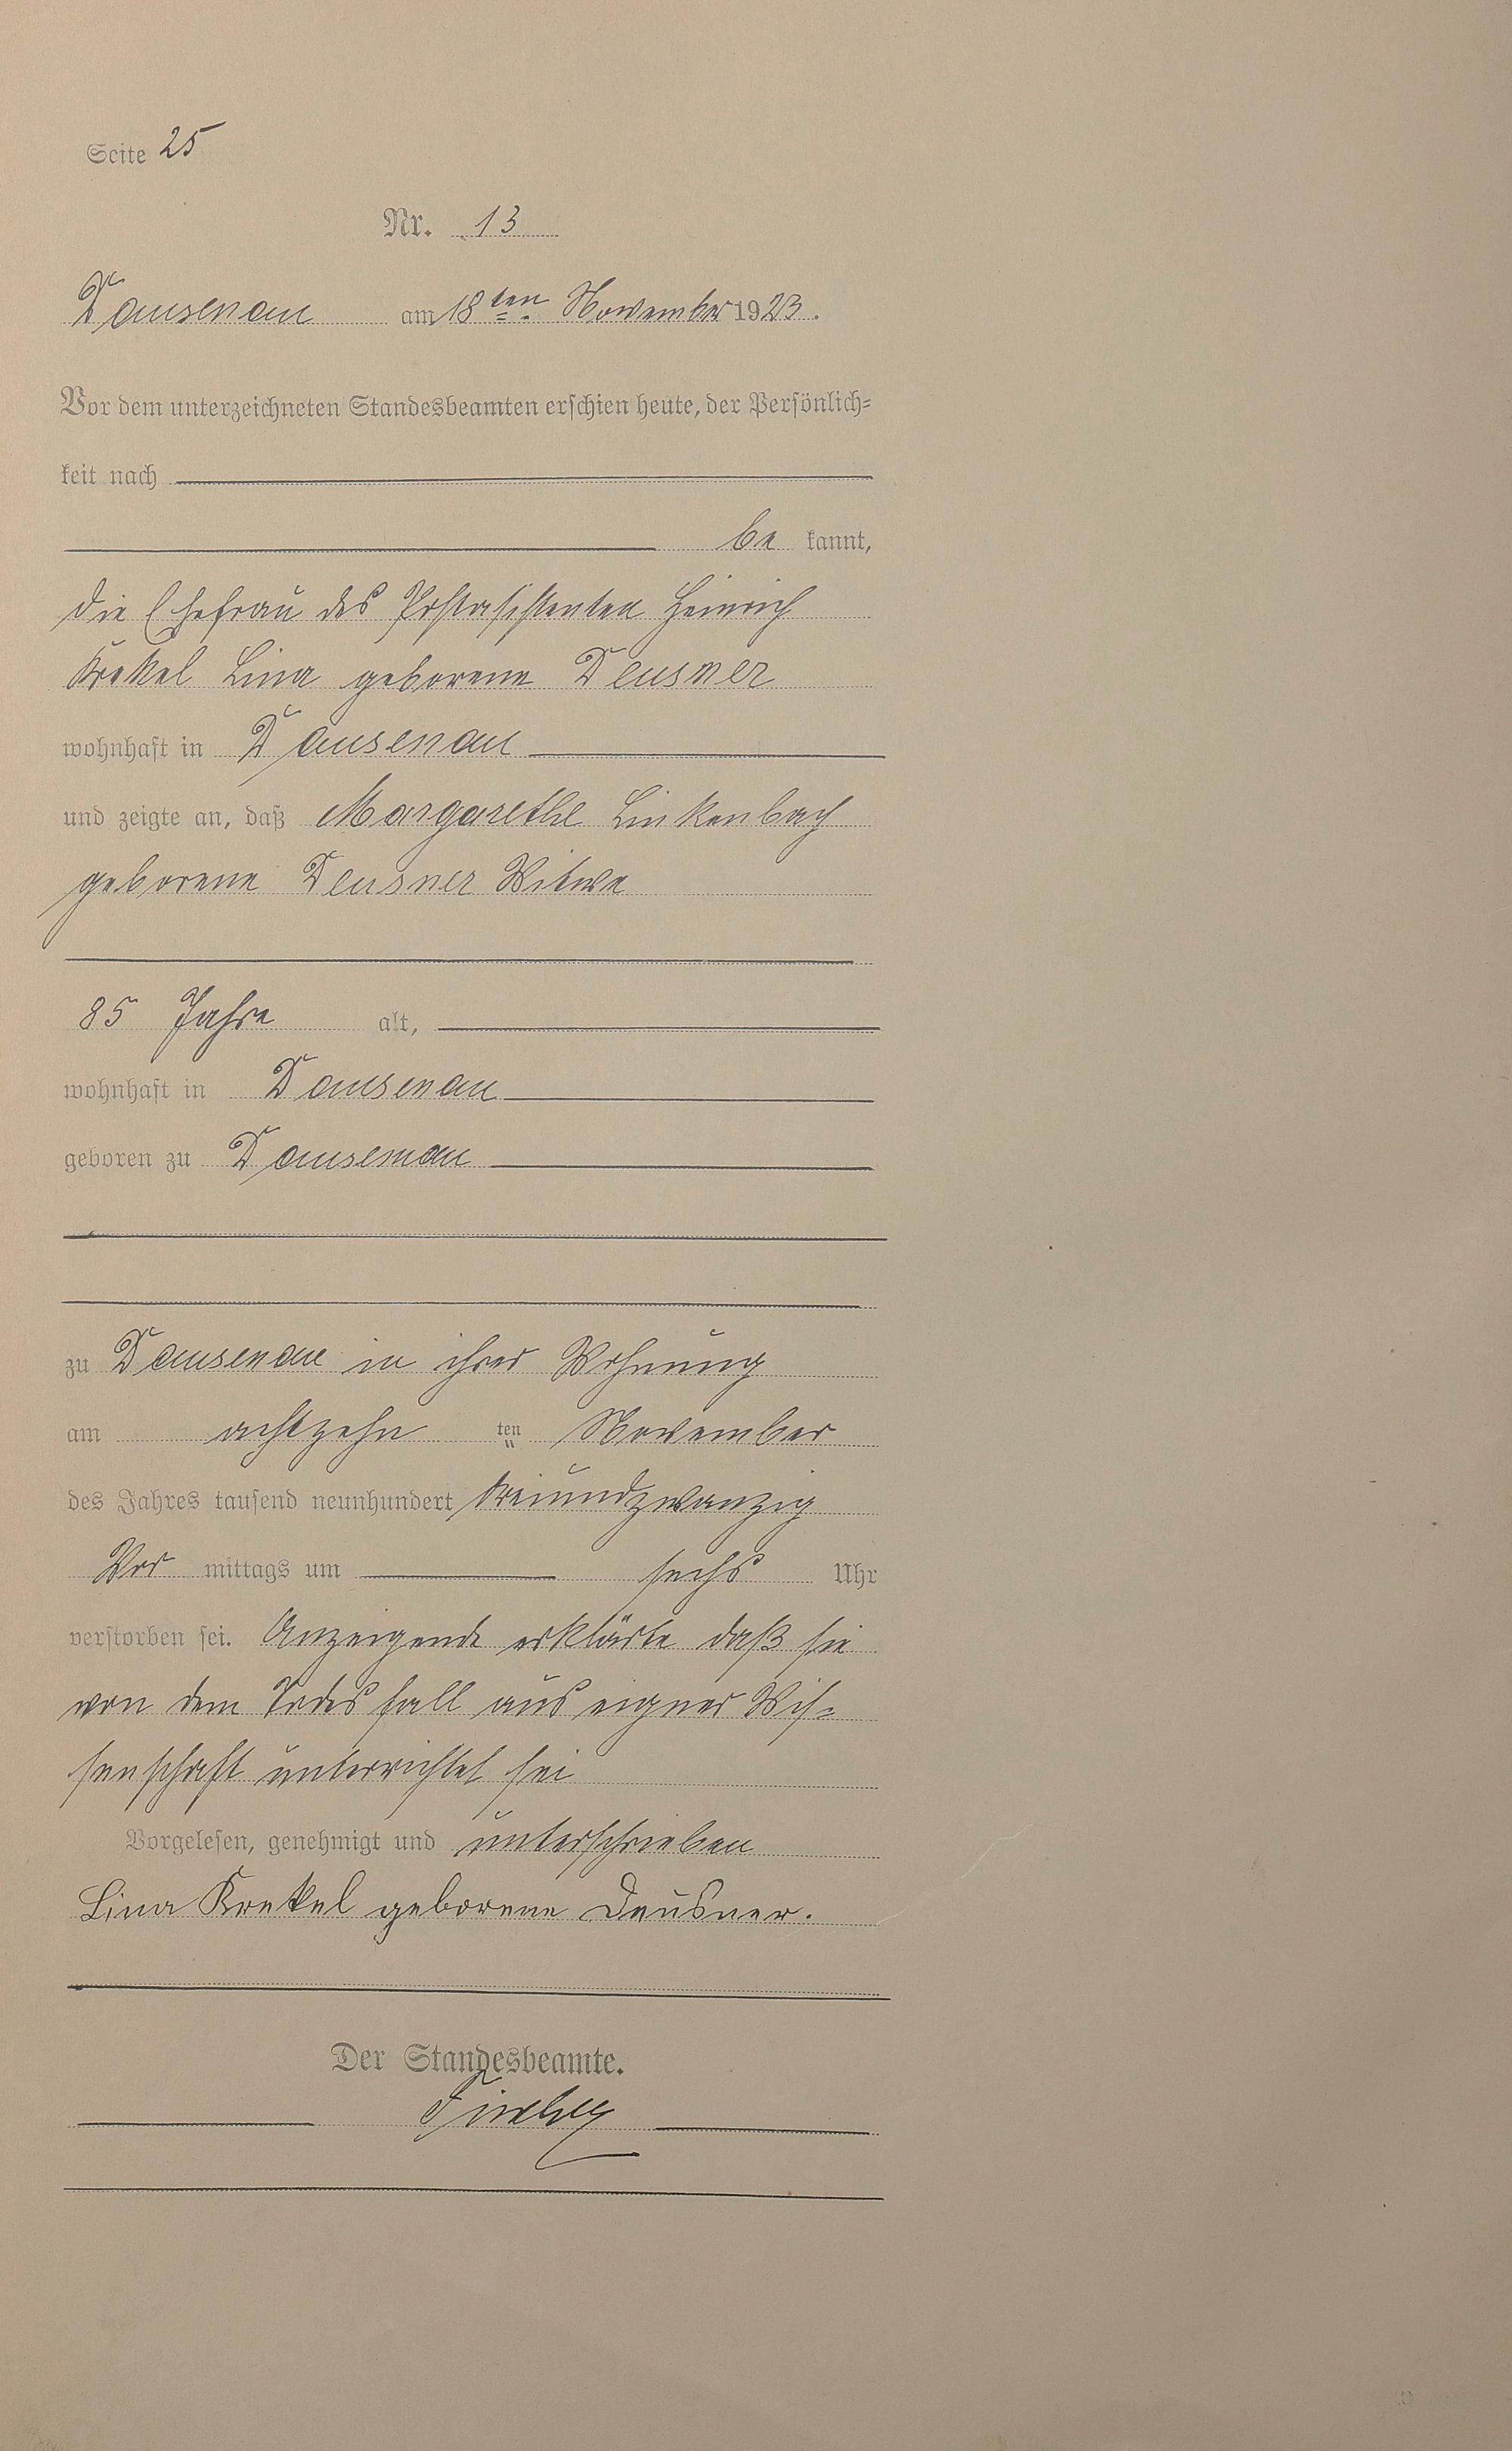 Seite 25
Nr. 13
Dausenau am 18ten November 1923.
Vor dem unterzeichneten Standesbeamten erschien heute, der Persönlich-
keit nach
be kannt,
die Ehefrau des Postassistenten Heinrich
Krekel Lina geborene Deusner
wohnhaft in Dausenau
und zeigte an, daß Margarethe Linkenbach
geborene Deusner Witwe
85 Jahre alt,
wohnhaft in Dausenau
geboren zu Dausenau
zu Dausenau in ihrer Wohnung
am achtzehn ten November
des Jahres tausend neunhundert dreiundzwanzig
Vor mittags um sechs Uhr
verstorben sei. Anzeigende erklärte daß sie
von dem Todesfall aus eigner Wis-
senschaft unterrichtet sei
Vorgelesen, genehmigt und unterschrieben
Lina Krekel geborene Deusner.
Der Standesbeamte.